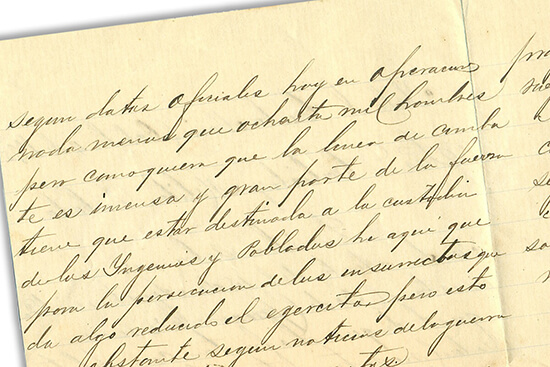 segun datos oficiales hoy en operacion
nada menos que ochenta mil hombres
pero como quiera que la linea de comba
te es imensa y gran parte de la fuerza
tiene que estar destinada a la custodia
de los Ingenios y Poblados he aqui que
para la persecucion de los insurrectos que
da algo reducido el egercito pero esto
obstante segun noticias de la guerra